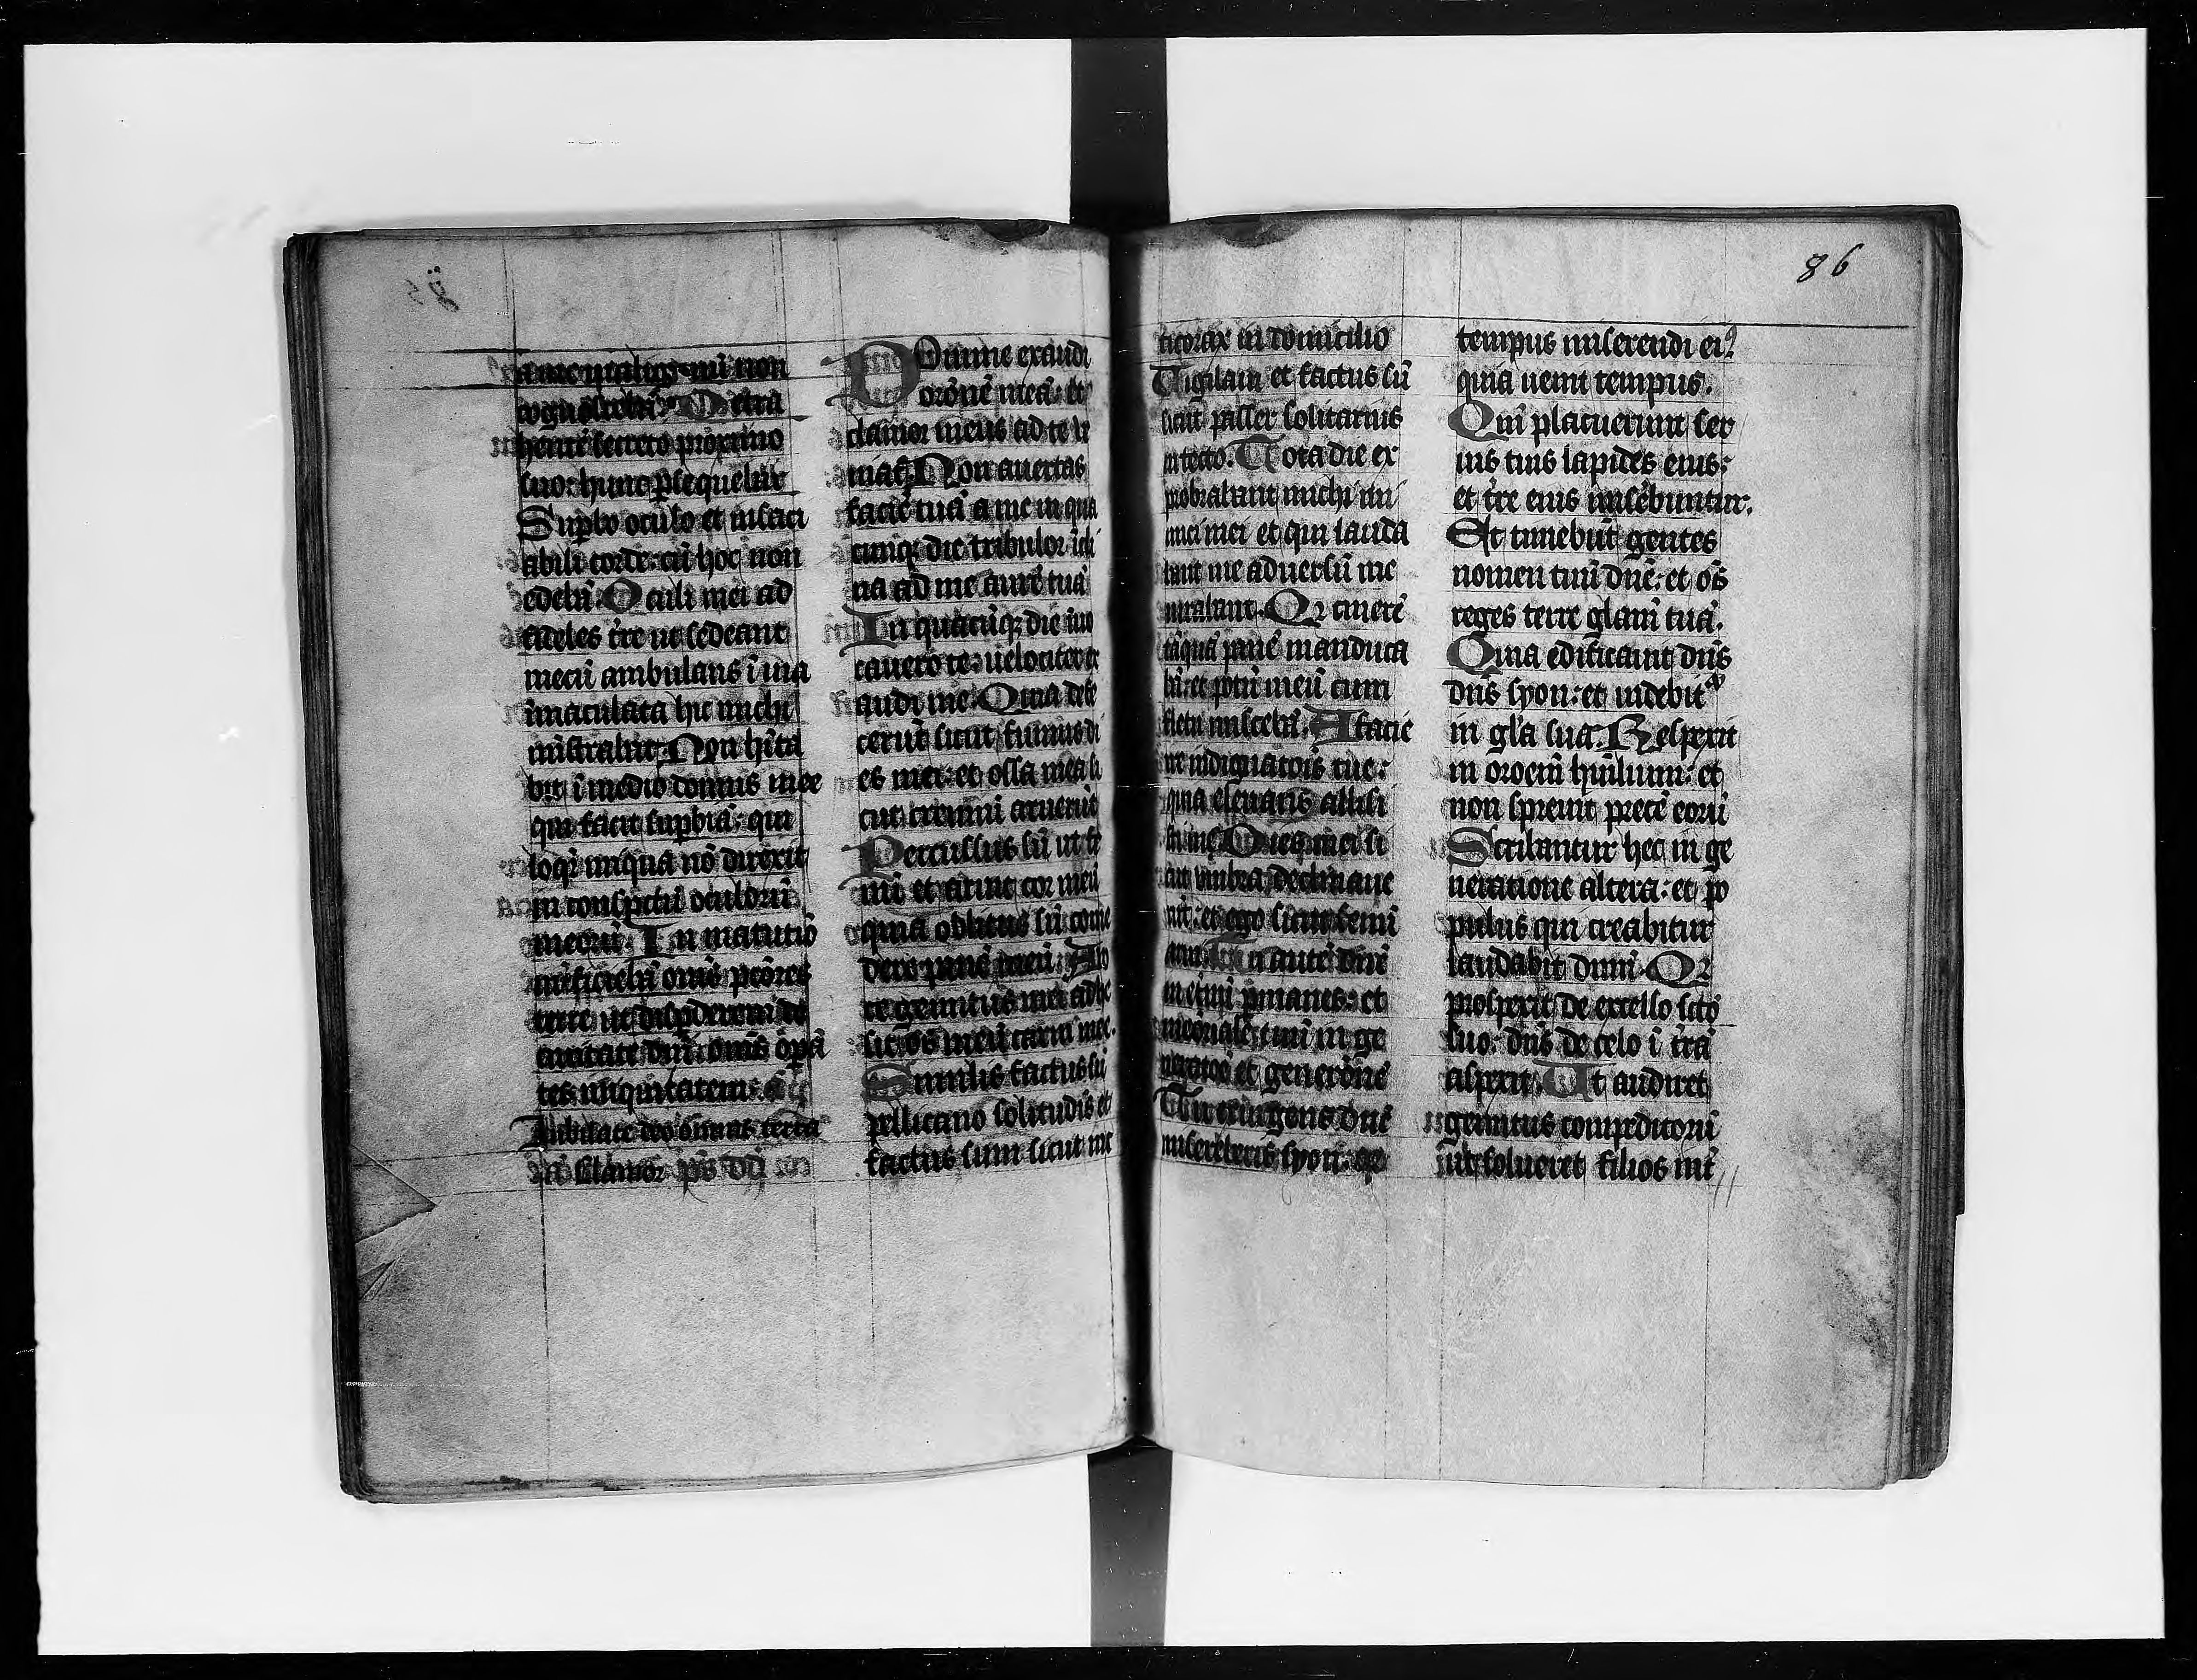 a me malignū non
cognoscebā. Detra
hentē secreto proximo
suo: hunc psequebar
Supbo oculo et insaci
abili corde: cū hoc non
edebā. Oculi mei ad
fideles tre ut sedeant
mecū ambulans ī uia
īmaculata hic michi
mīstrabat. Non hīta
bit ī medio domus mee
qui facit supbiā: qui
loqr̄ iniqua nō direxit
in conspctū oculorū
meorū. In matutīo
intficiebā omīs pctōres
terre ut dispderem de
ciuitate dn̄i omīs opā
tes iniquitatem.
Iubilate deo omnis terra
Clamor
Domine exaudi
orōnē meā: et
clamor meus ad te ue
niat. Non auertas
faciē tuā a me in qua
cumq; die tribulor īcli
na ad me aurē tuā
In quacūq; die īuo
cauero te: uelociter ex
audi me. Quia defe
cerūt sicut fumus di
es mei: et ossa mea si
cut cremiū aruerūt
Percussus sū ut fe
nū et aruit cor meū
quia oblitus sū come
dere panē meū. A uo
ce gemitus mei adhe
sit os meū carni mee.
Similis factus sū
pellicano solitudīs et
factus sum sicut nic
ticorax in domicilio
Uigilaui et factus sū
sicut passer solitarius
in tecto. Tota die ex
probrabant michi ini
mici mei et qui lauda
bant me aduersū me
iurabant. Qr cinerē
tāquā panē manduca
bā: et potū meū cum
fletu miscebā. A facie
ire indignatōis tue:
quia eleuans allisi
sti me. Dies mei si
cut umbra declinaue
rūt: et ego sicut fenū
arui. Tu autē dn̄e
in etnū pmanes: et
memoriale tuū in ge
neratōe et generōnē
Tu exurgens dn̄e
misereberis syon: qr
tempus miserendi ei9
quia uenit tempus.
Qm̄ placuerunt ser
uis tuis lapides eius:
et tre eius misēbuntur.
Et timebūt gentes
nomen tuū dn̄e: et oēs
reges terre gl̄am tuā.
Quia edificauit dn̄s
dn̄s syon: et uidebit
in gl̄a sua. Respexit
in orōem humilium: et
non spreuit precē eorū
Scribantur hec in ge
neratione altera: et po
pulus qui creabitur
laudabit dnm̄. Qr
prospexit de excelso scō
suo: dn̄s de celo ī trā
aspexit. Ut audiret
gemitus compeditorū
ut solueret filios int
86